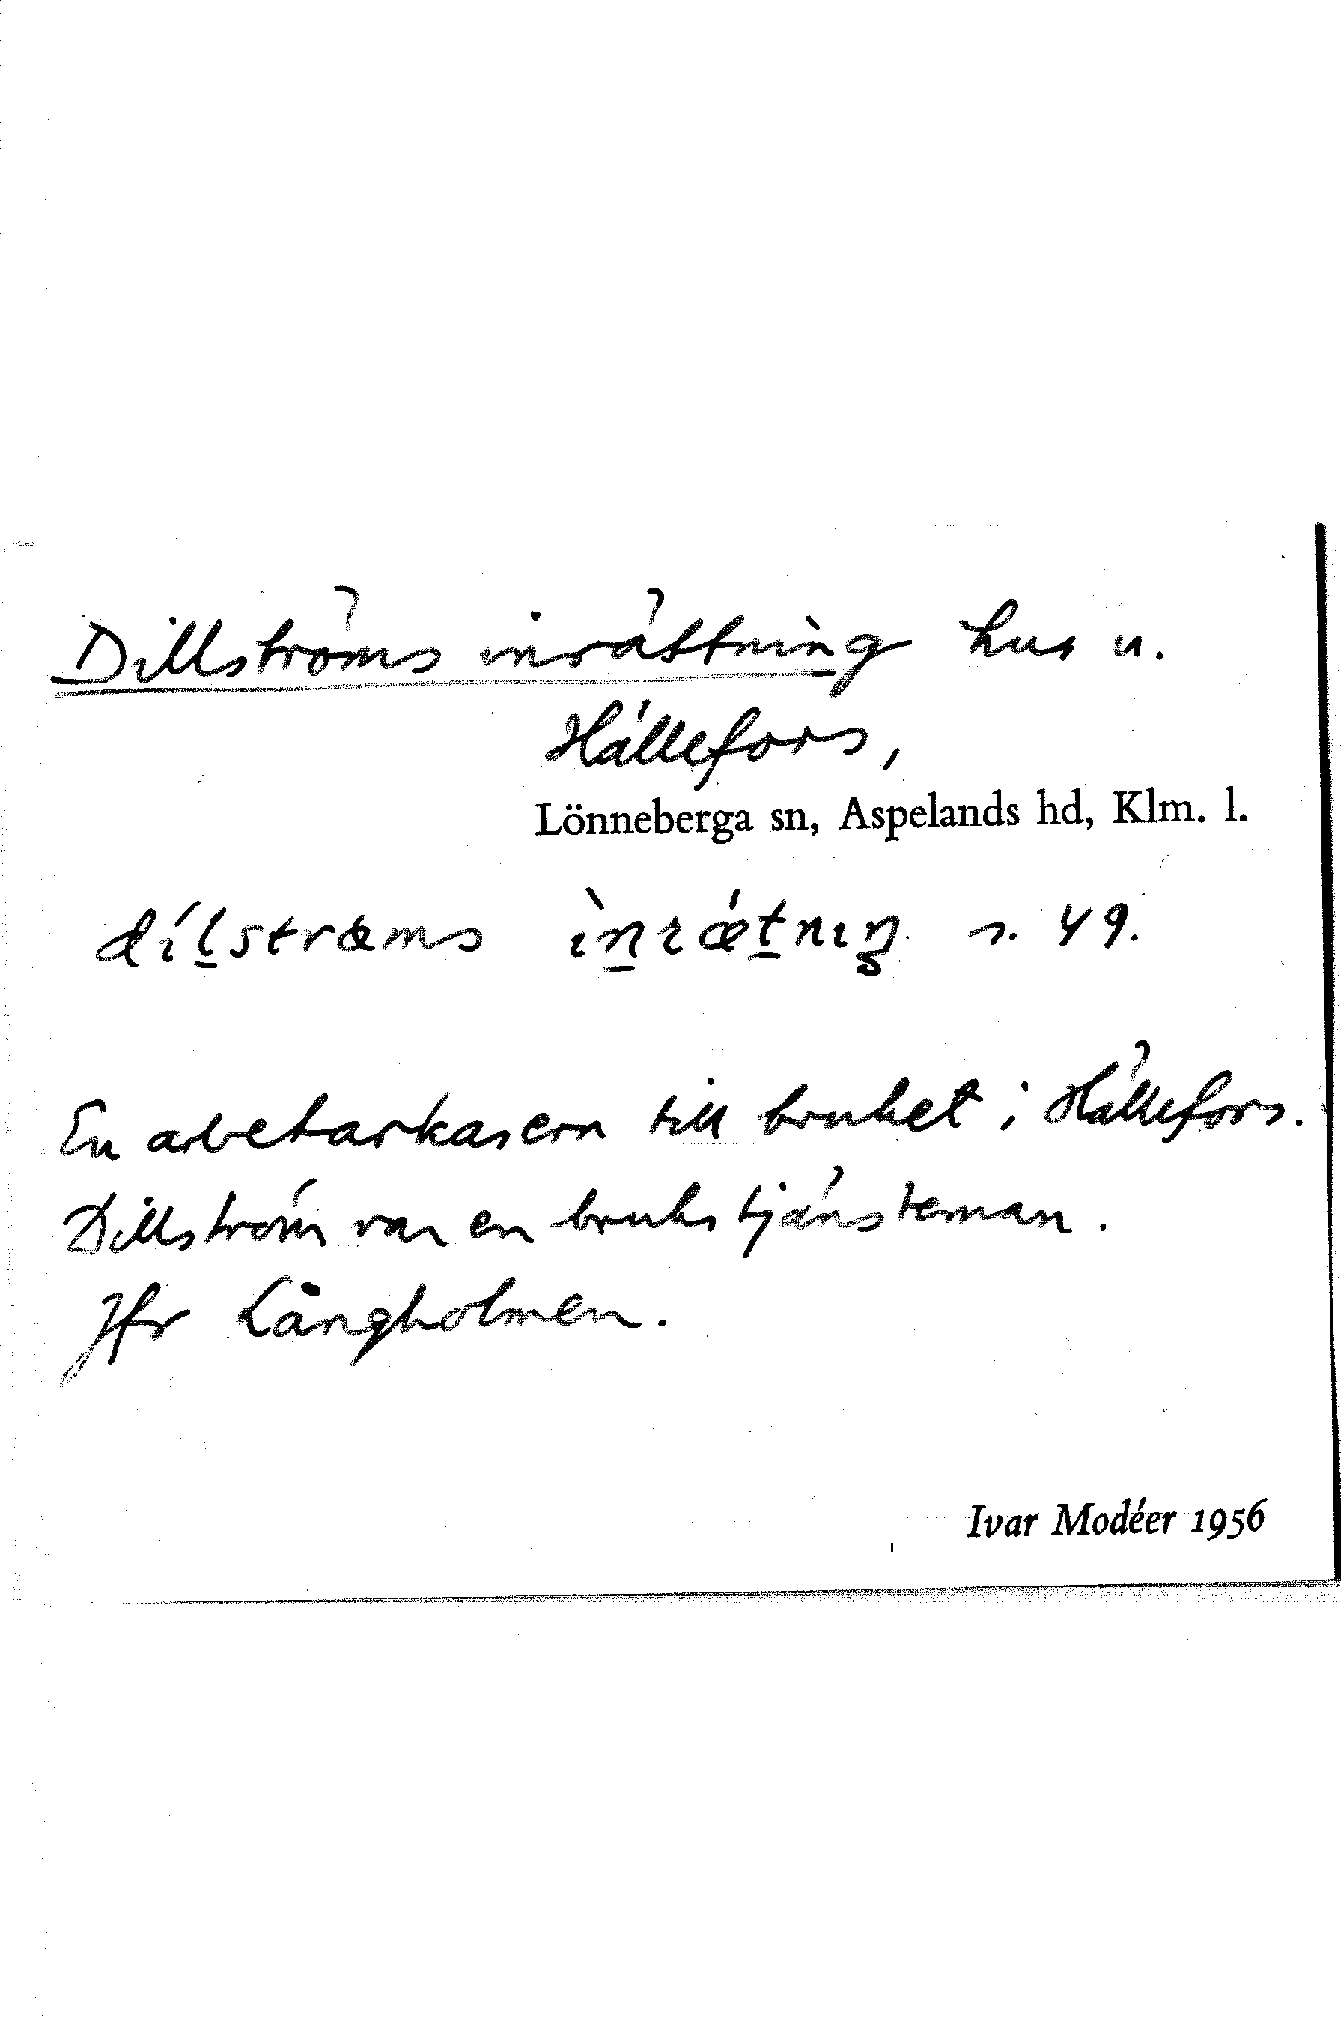 Dillströms inrättning hus u.
Hällefors,
Lönneberga sn, Aspelands hd, Klm. l.
díl̠strœms ìn̠rǽt̠nıŋ s. 49.
En arbetarkasern till bruket i Hällefors.
Dillström var en brukstjänsteman.
Jfr Långholmen.
Ivar Modéer 1956